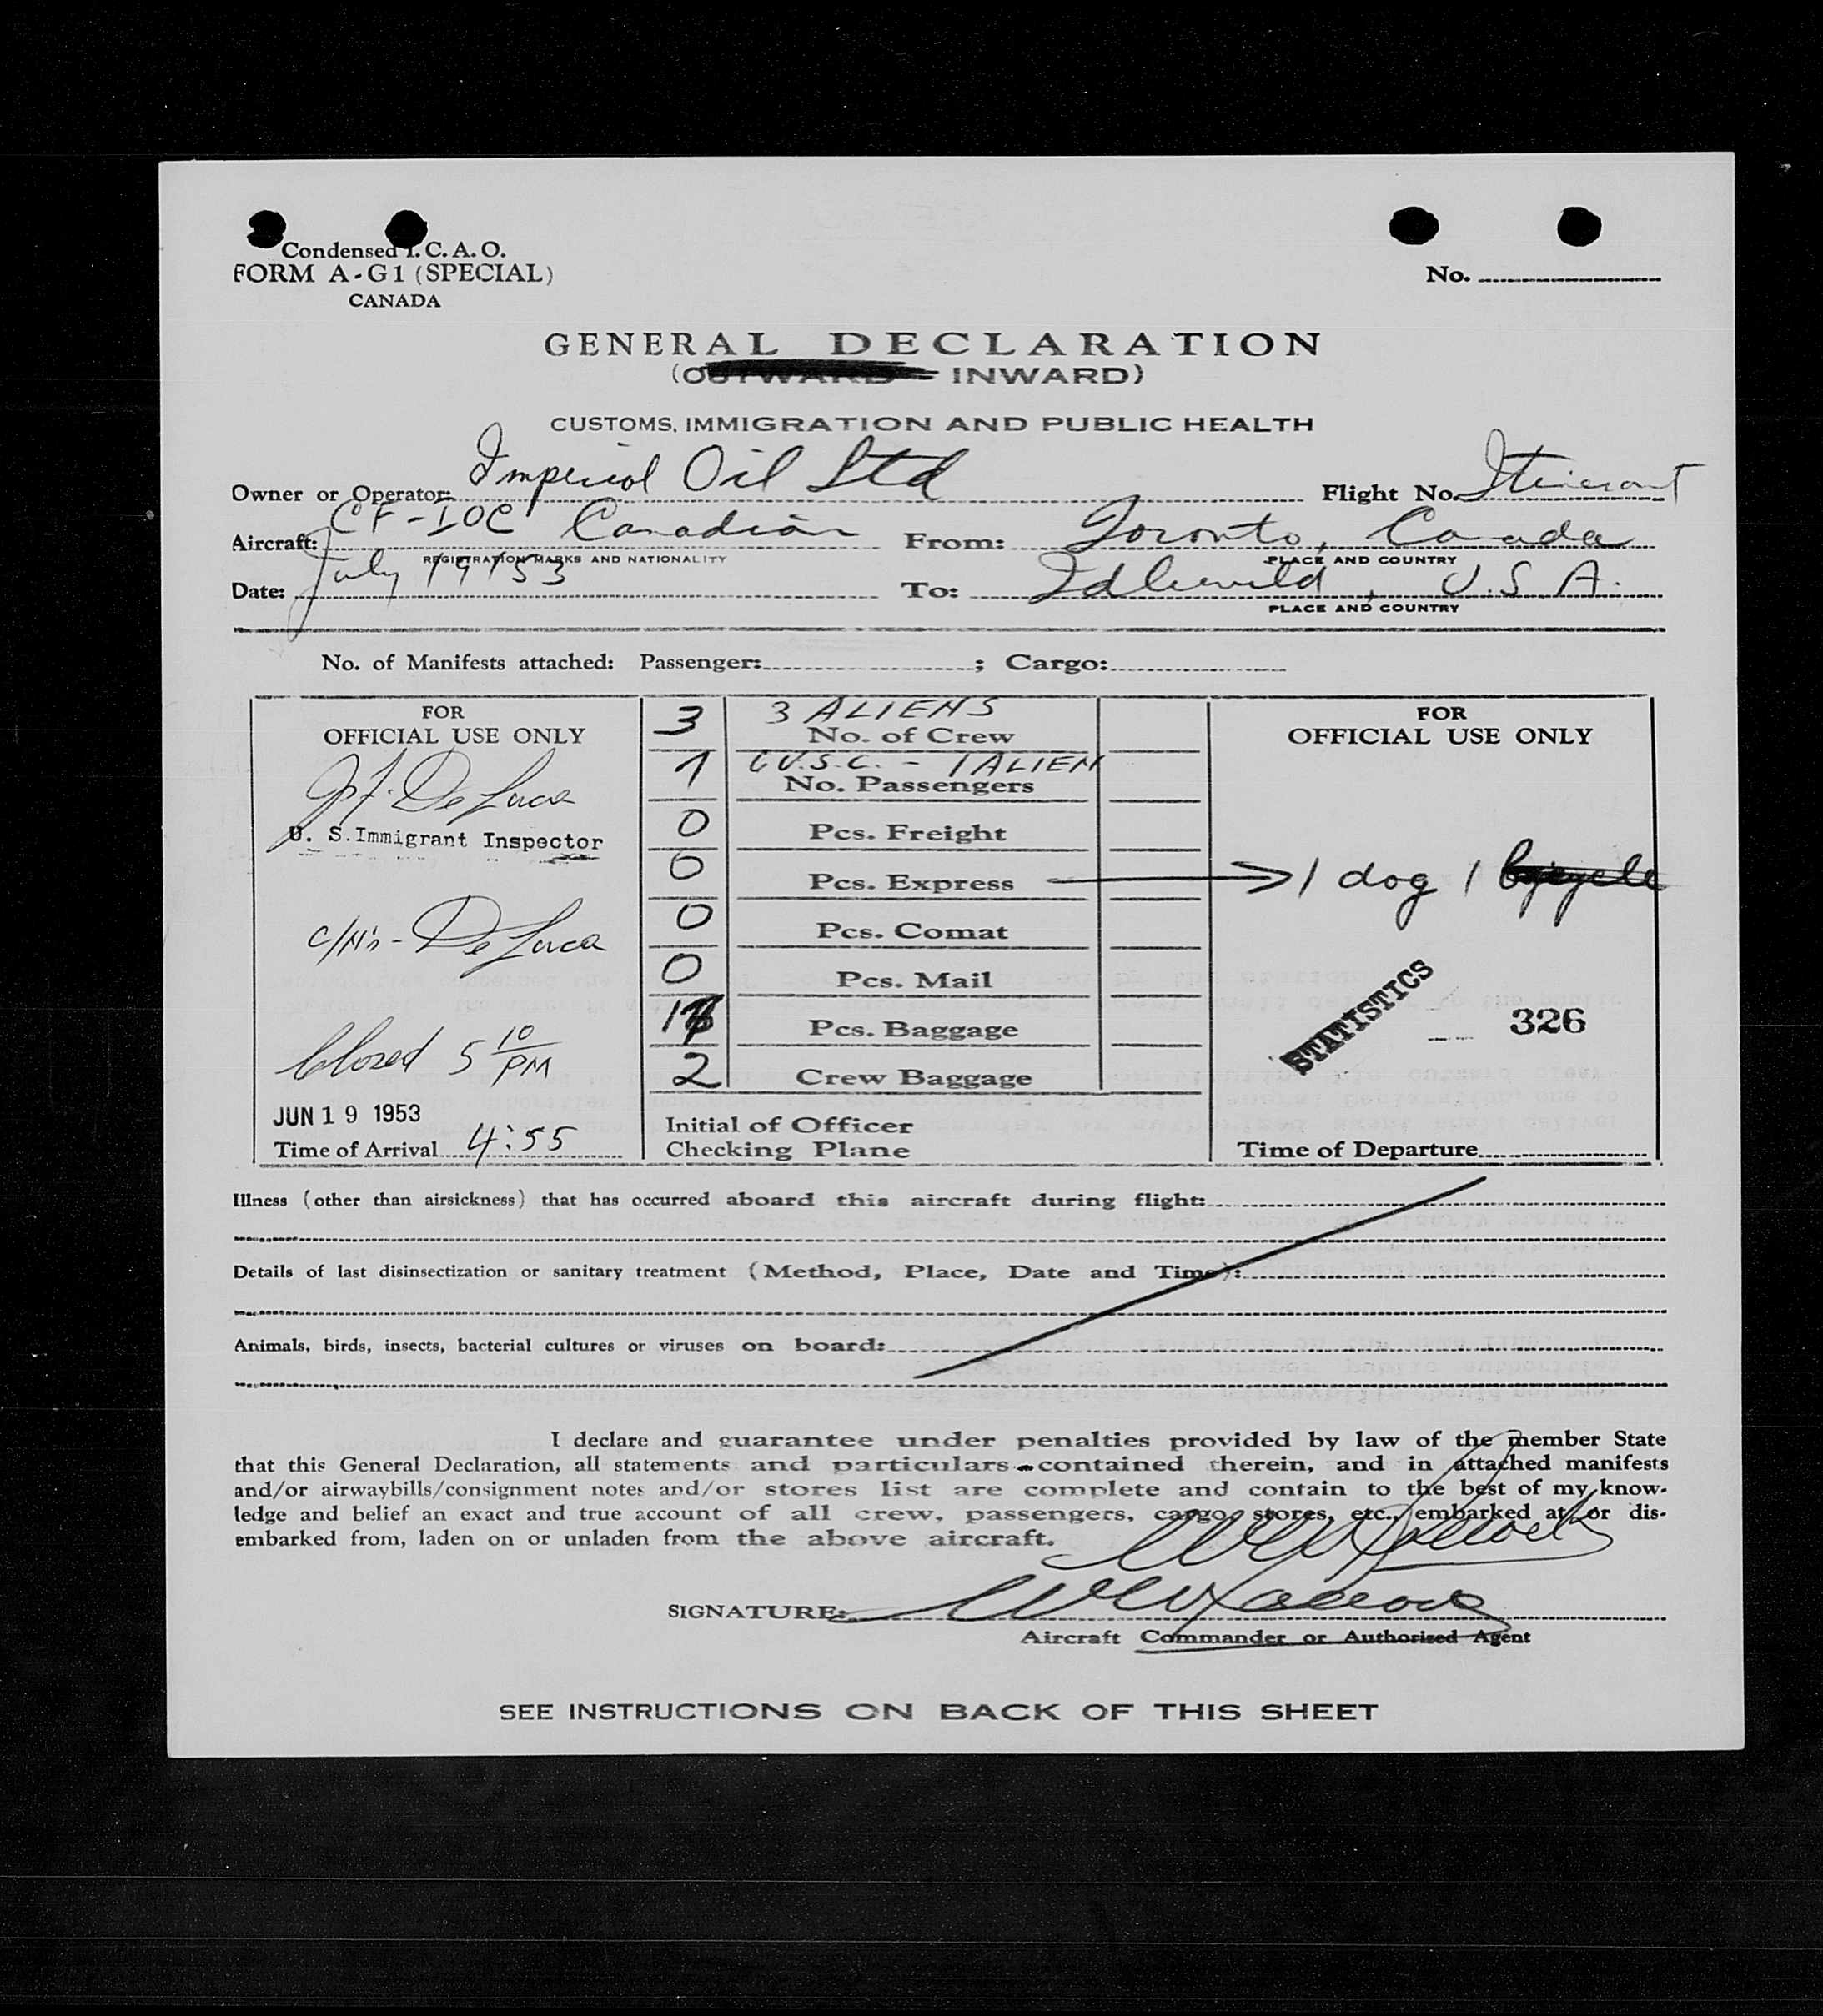 Condensed I.C.A.O.
FORM A-G1 (SPECIAL)
CANADA
No.
GENERAL DECLARATION
(OUTWARD - INWARD)
CUSTOMS, IMMIGRATION AND PUBLIC HEALTH
Owner or Operator: Imperial Oil Ltd Flight No. Itinerant
Aircraft: CF-IOC Canadian From: Toronto, Canada
REGISTRATION MARKS AND NATIONALITY PLACE AND COUNTRY
Date: July 19/53 To: Idlewild, U.S.A.
PLACE AND COUNTRY
No. of Manifests attached: Passenger: ; Cargo:
FOR
OFFICIAL USE ONLY
De Luca
U. S. Immigrant Inspector
De Luca
Closed 5 10 PM
JUN 19 1953
Time of Arrival 4:55
3 3 ALIENS
No. of Crew
6 U.S.C. - 1 ALIEN
No. Passengers
0 Pcs. Freight
0 Pcs. Express
0 Pcs. Comat
0 Pcs. Mail
Pcs. Baggage
2 Crew Baggage
Initial of Officer
Checking Plane
FOR
OFFICIAL USE ONLY
1 dog 1 bycycle
STATISTICS
326
Time of Departure
Illness (other than airsickness) that has occurred aboard this aircraft during flight:
Details of last disinsectization or sanitary treatment (Method, Place, Date and Time):
Animals, birds, insects, bacterial cultures or viruses on board:
I declare and guarantee under penalties provided by law of the member State
that this General Declaration, all statements and particulars contained therein, and in attached manifests
and/or airwaybills/consignment notes and/or stores list are complete and contain to the best of my know-
ledge and belief an exact and true account of all crew, passengers, cargo, stores, etc., embarked at or dis-
embarked from, laden on or unladen from the above aircraft.
SIGNATURE:
Aircraft Commander or Authorized Agent
SEE INSTRUCTIONS ON BACK OF THIS SHEET